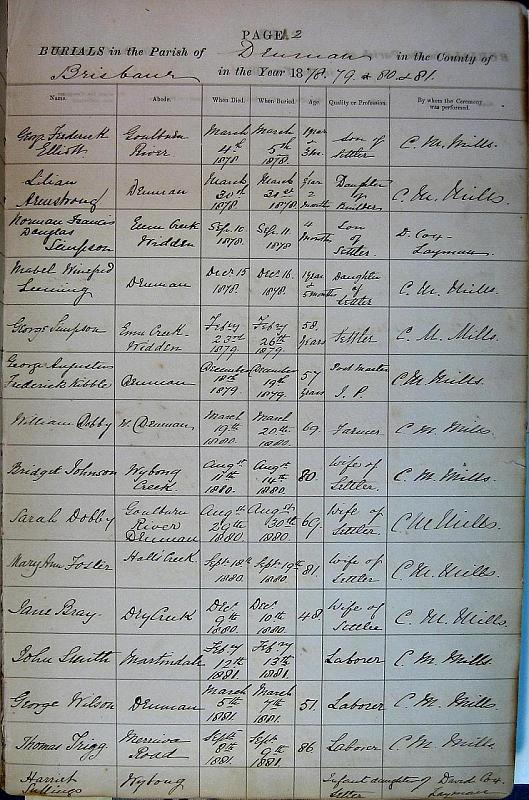 PAGE 2
BURIALS in the Parish of Denman in the County of
Brisbane in the Year 1878, 79 & 80 & 81.
Name. Abode. When Died. When Buried. Age. Quality or Profession. By whom the Ceremony was performed.
George Frederick Elliott Goulburn River March 4th 1878 March 5th 1878 Son of Settler C. M. Mills.
Lilian Armstrong Denman March 30th 1878 March 31st 1878 Daughter of Builder C. M. Mills.
Norman Francis Douglas Simpson Emu Creek Widden Sep. 10 1878 Sep. 11 1878 4 Months Son of Settler. D. Cox Layman.
Mabel Winifred Denman Decr 15 1878 Decr 16 1878 1 year & 5 months Daughter of Settler C. M. Mills.
George Simpson Emu Creek Widden Feby 23rd 1879. Feby 26th 1879. 58 Years Settler C. M. Mills
George Augustus Frederick Kibble Denman December 18th 1879. December 19th 1879. 57 Years Post Master J. P. C M Mills.
William Dobby N. Denman March 19th 1880. March 20th 1880. 69. Farmer C. M. Mills.
Bridget Johnson Wybong Creek. Augst 11th 1880. Augst 14th 1880. 80. Wife of Settler. C. M. Mills.
Sarah Dobby Goulburn River Denman Augst 29th 1880. Augst 30th 1880. 69. Wife of Settler. C M Mills.
Mary Ann Foster Halls Creek. Sept 18th 1880. Sept 19th 1880. 81. Wife of Settler C. M. Mills.
Jane Bray Dry Creek Decr 9th 1880. Decr 10th 1880. 48. Wife of Settler C. M. Mills
John Smith Martindale Feby 12th 1881. Feby 13th 1881. Laborer C. M. Mills.
George Wilson Denman March 5th 1881. March 7th 1881. 51. Laborer C. M. Mills.
Thomas Trigg Merriwa Road Sept 8th 1881. Sept 9th 1881. 86 Laborer C. M. Mills.
Harriet Wybong Infant daughter of Settler David Cox. Layman